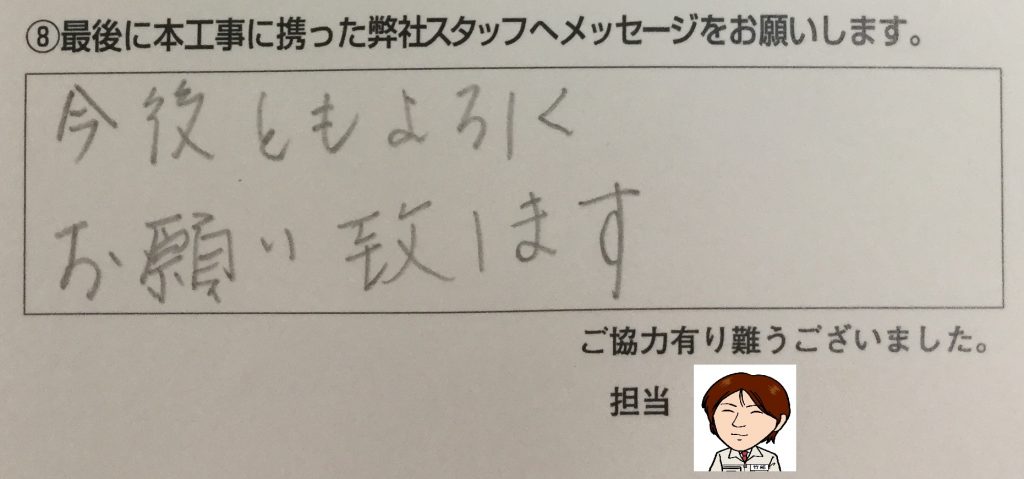 ⑧最後に本工事に携った弊社スタッフへメッセージをお願いします。
今後ともよろしく
お願い致します
ご協力有り難うございました。
担当